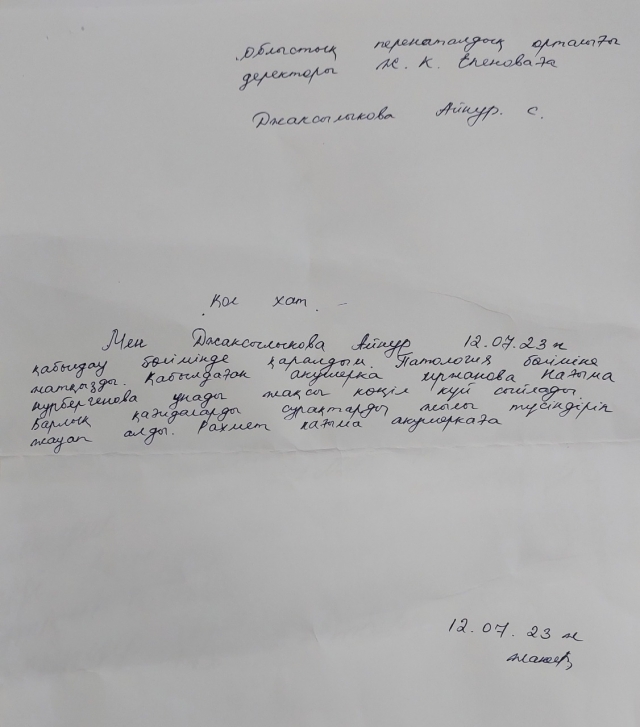 облыстық перенаталдық орталығы
деректоры Ж. К. Еленоваға
Джаксылыкова Айнур. с.
Қол хат. –
Мен Джаксылыкова Айнур 12.07.23 ж
қабылдау бөлімінде қаралдым. Патология бөліміне
жатқызды. Қабылдаған акушерка ирманова Нағыма
нурбергенова унады жақсы көңіл күй сыйлады.
Барлық қағидаларды сурақтарды жылы түсіндіріп
жауап алды. Рахмет нағыма акушеркаға
12.07.23 ж